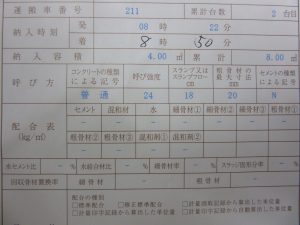 運搬車番号 211 累計台数 2 台目
納入時刻 発 08 時 22 分
着 8 時 50 分
納入容積 4.00 ㎥ 累計 8.00 ㎥
呼び方 コンクリートの種類による記号 呼び強度 スランプ又はスランプフロー cm 粗骨材の最大寸法 mm セメントの種類による記号
普通 24 18 20 N
配合表 (kg/㎥) セメント 混和材 水 細骨材① 細骨材② 細骨材③ 粗骨材①
- - - - - - -
粗骨材② 粗骨材③ 混和剤① 混和剤②
- - - -
水セメント比 - % 水結合材比 - % 細骨材率 - % スラッジ固形分率 - %
回収骨材置換率 細骨材 - 粗骨材 -
配合の種別
□標準配合 □修正標準配合 □計量読取記録から算出した単位量
□計量印字記録から算出した単位量 □計量印字記録から自動算出した単位量